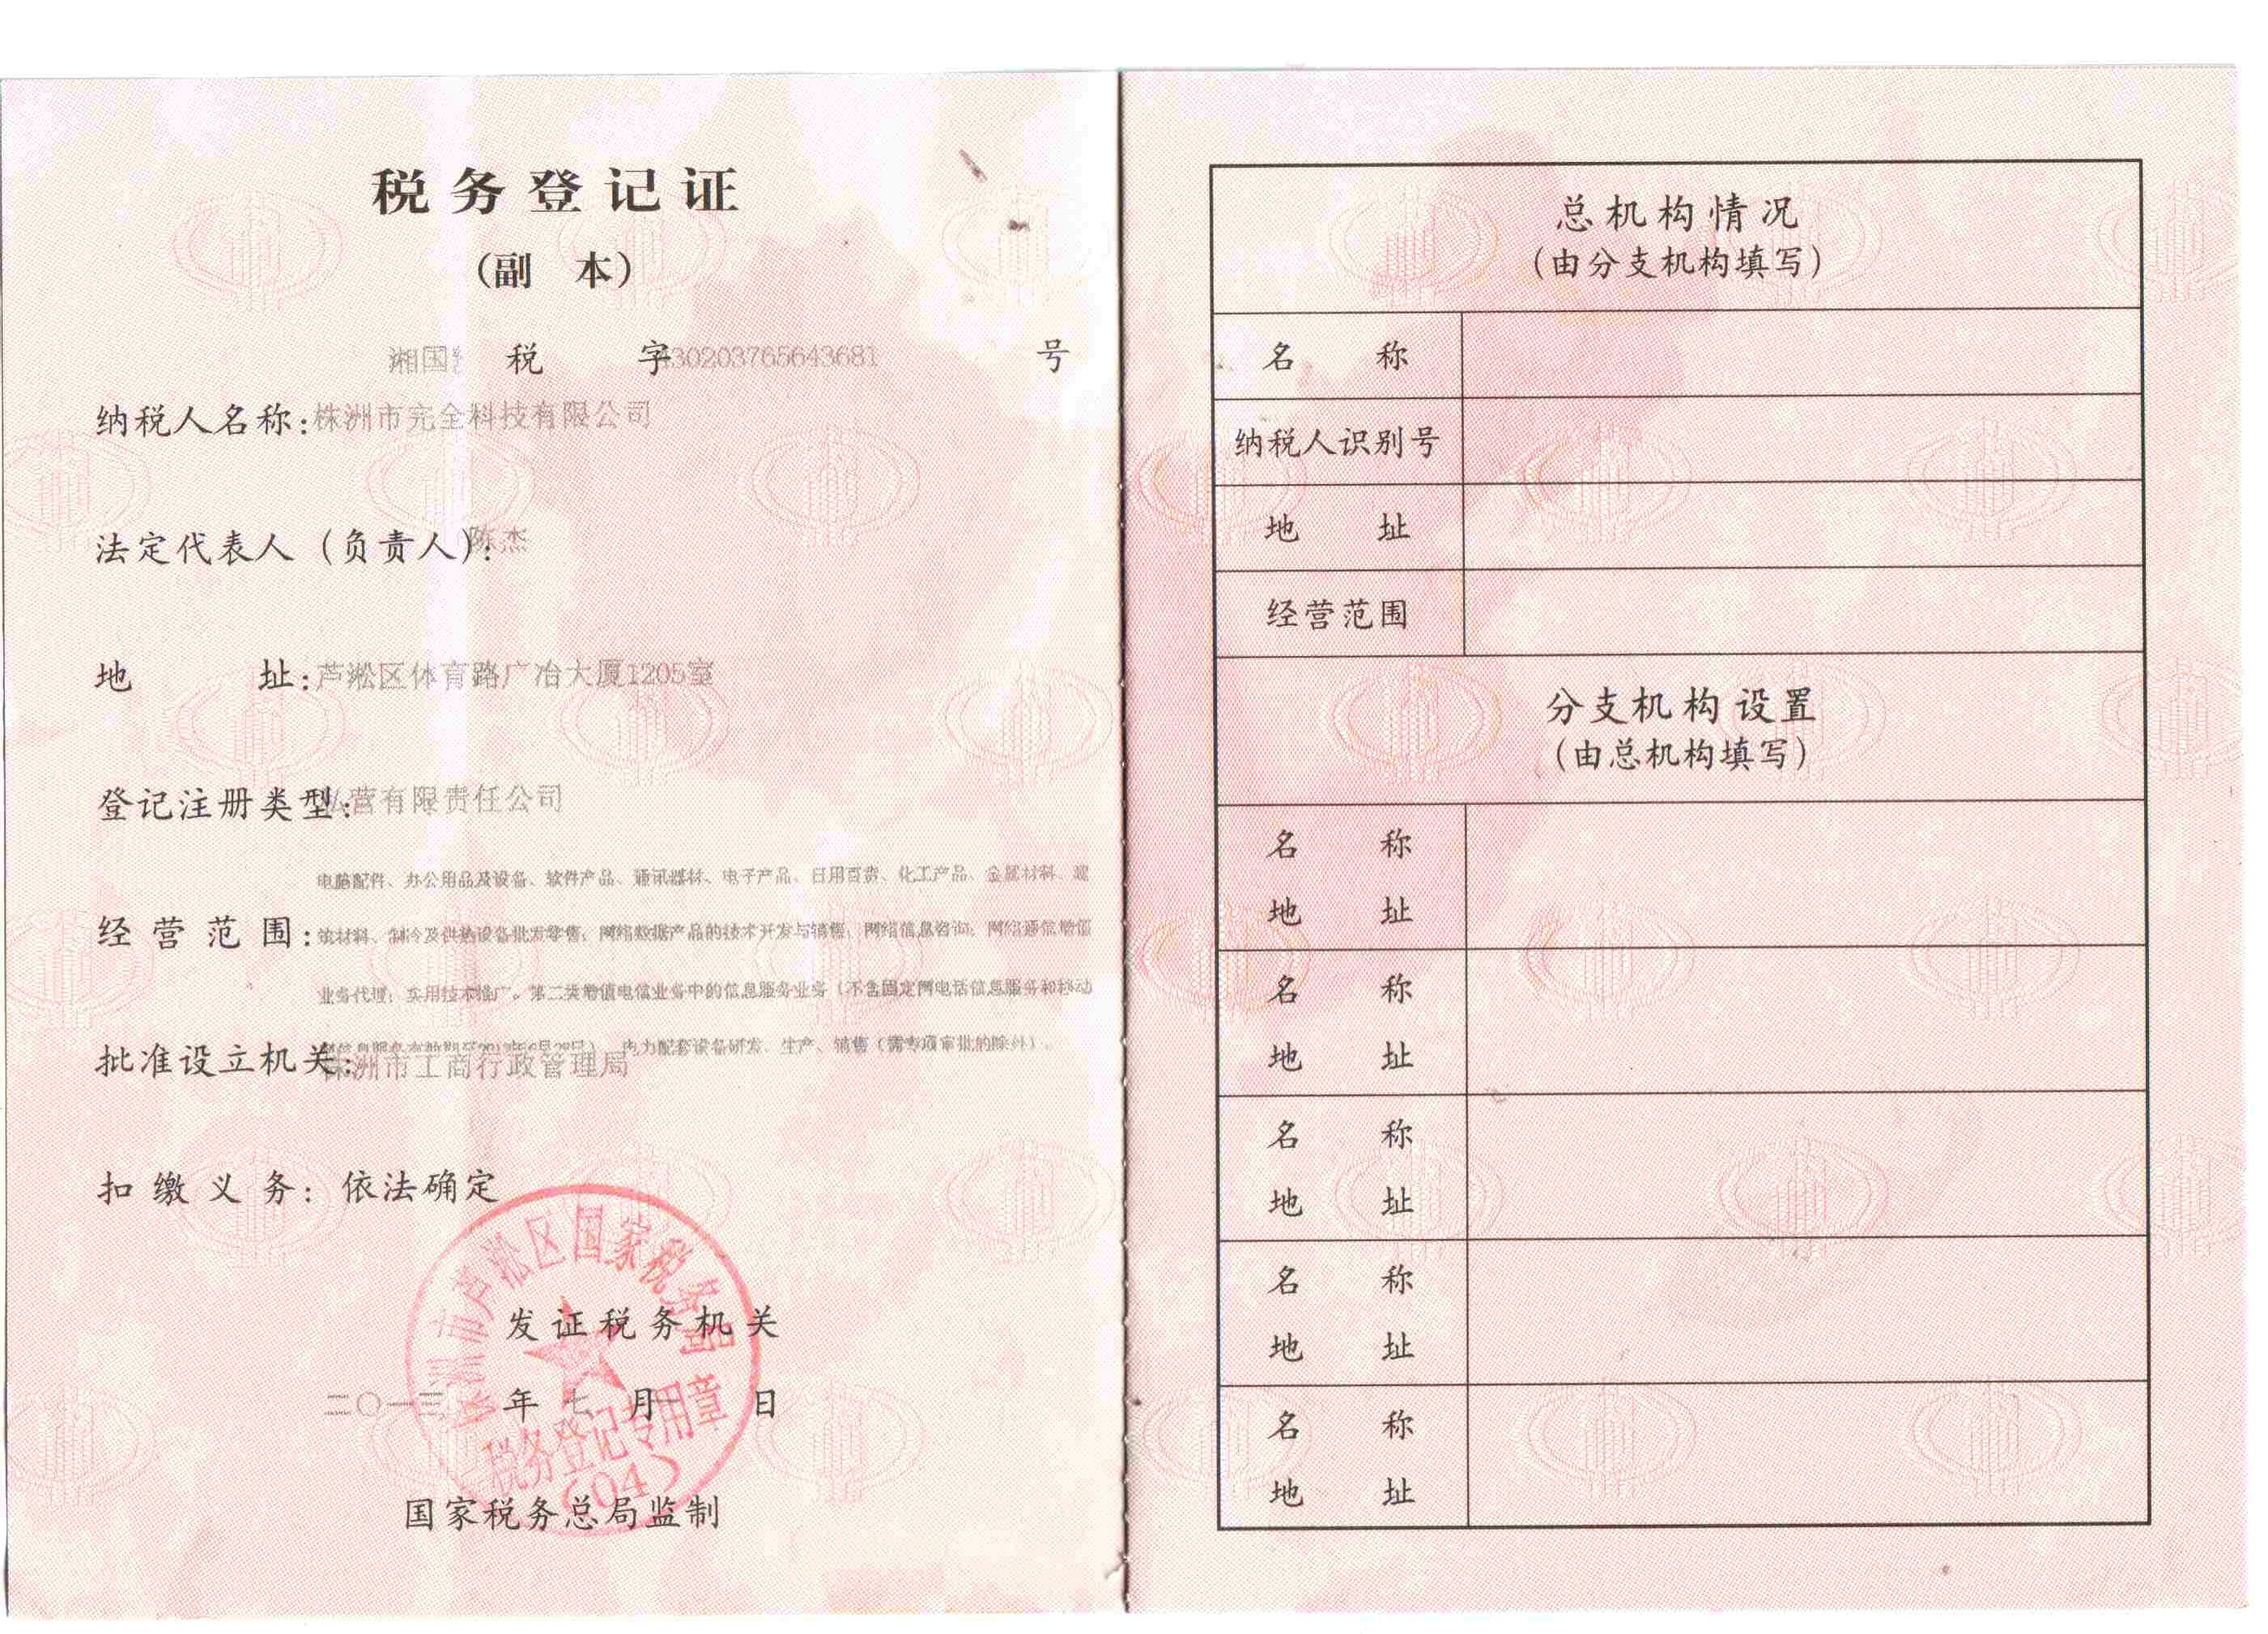 税务登记证
(副 本)
湘国 税 字 430203765643681 号
纳税人名称:株洲市完全科技有限公司
法定代表人(负责人):陈杰
地 址:芦淞区体育路广冶大厦1205室
登记注册类型:私营有限责任公司
电脑配件、办公用品及设备、软件产品、通讯器材、电子产品、日用百货、化工产品、金属材料、建
经营范围:筑材料、制冷及供热设备批发零售;网络数据产品的技术开发与销售;网络信息咨询;网络通信增值
业务代理;实用技术推广。第二类增值电信业务中的信息服务业务(不含固定网电话信息服务和移动
电力配套设备研发、生产、销售(需专项审批的除外)。
批准设立机关:株洲市工商行政管理局
扣缴义务:依法确定
株洲市芦淞区国家税务局
发证税务机关
二〇一三 年 七 月 日
税务登记专用章
(04)
国家税务总局监制
总机构情况
(由分支机构填写)
名 称
纳税人识别号
地 址
经营范围
分支机构设置
(由总机构填写)
名 称
地 址
名 称
地 址
名 称
地 址
名 称
地 址
名 称
地 址